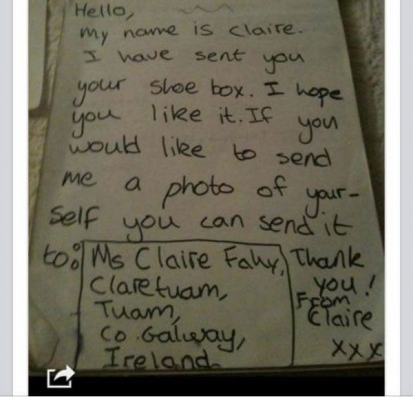 Hello,
my name is claire.
I have sent you
your shoe box. I hope
you like it. If you
would like to send
me a photo of your-
self you can send it
to: Ms Claire Fahy,
Claretuam,
Tuam,
Co. Galway,
Ireland
Thank
you!
From
Claire
xxx